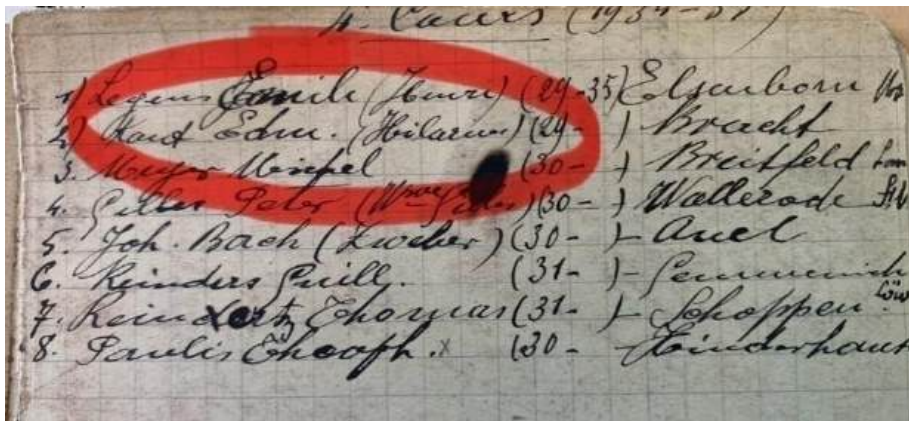 4. Cours (1934-37)
1) Legens Emile (Henri) (29-35) Elsenborn
2) Edm. (Hilarius) (29- ) Bracht
3. Meyer Michel (30- ) Breitfeld
4. Gilles Peter (30- ) Wallerode
5. Joh. Bach (30- ) - Auel
6. Reinders Guill. (31- ) - Gemmenich
7. Reinartz Thomas (31- ) - Schoppen
8. Paulis x (30- - Hinderhaus